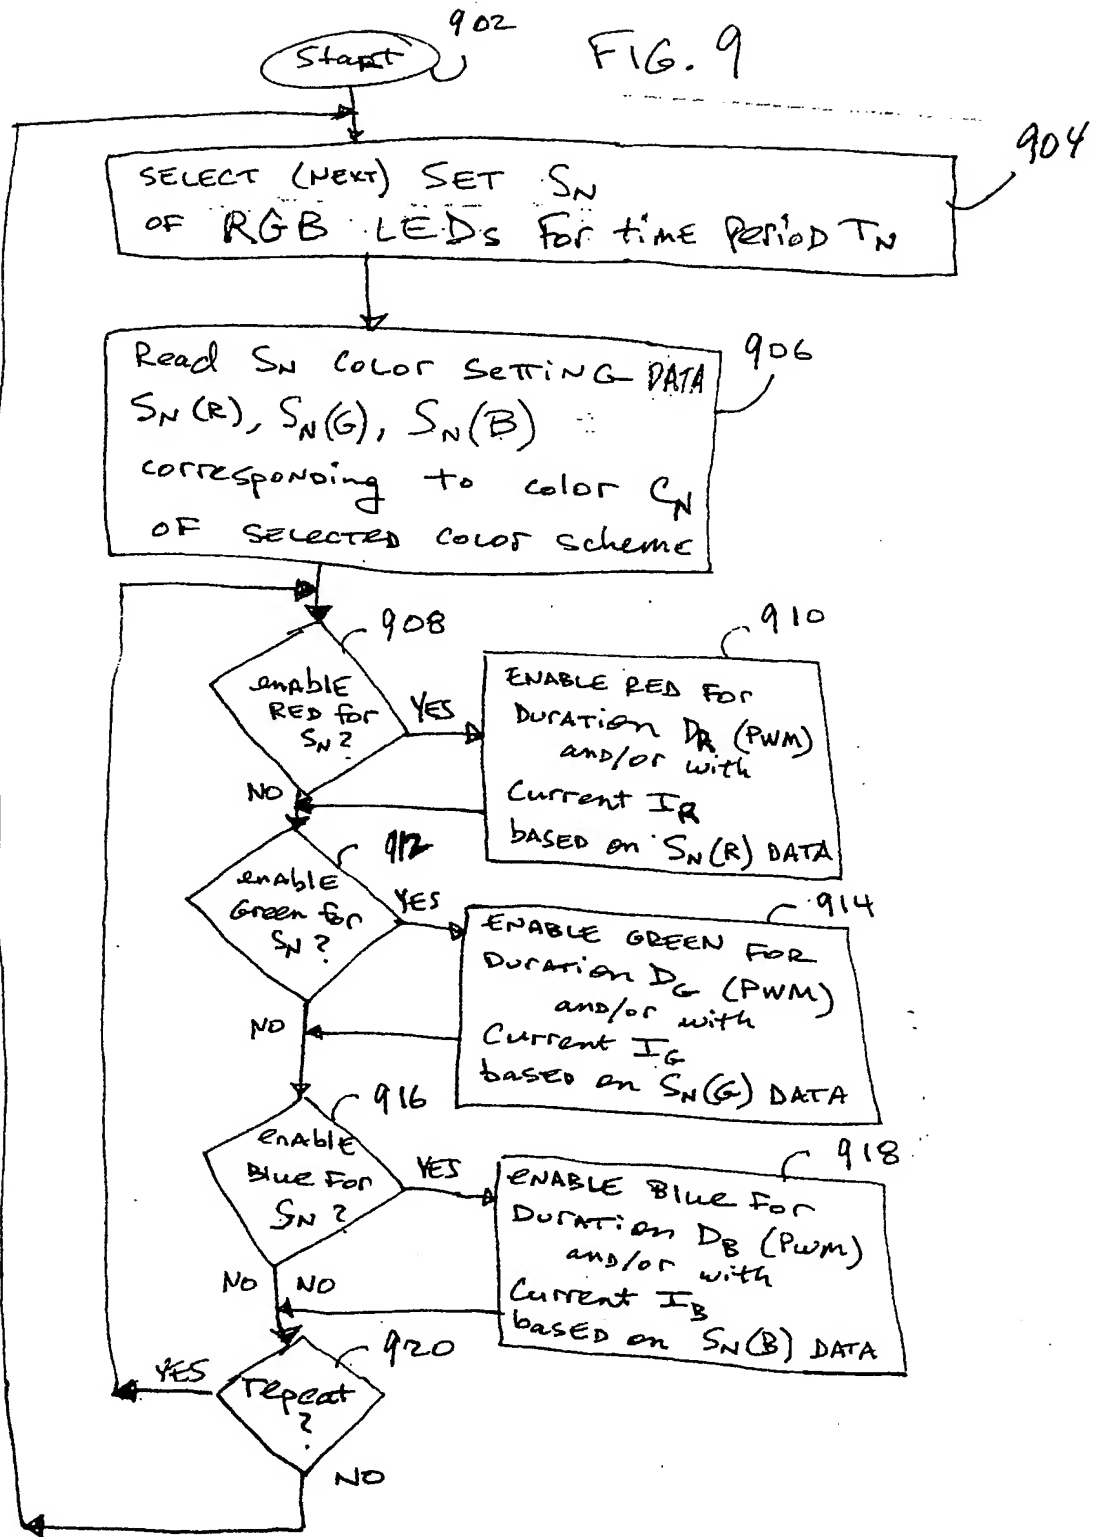 902
Start
FIG. 9
904
SELECT (NEXT) SET SN
OF RGB LEDs For time Period TN
906
Read SN COLOR SETTING DATA
SN(R), SN(G), SN(B)
corresponding to color CN
OF SELECTED COLOR scheme
908
enable
RED for
SN?
YES
NO
910
ENABLE RED For
Duration DR (PWM)
and/or with
Current IR
based on SN(R) DATA
912
enable
Green for
SN?
YES
NO
914
ENABLE GREEN FOR
Duration DG (PWM)
and/or with
Current IG
based on SN(G) DATA
916
enable
Blue For
SN?
YES
NO NO
918
ENABLE Blue For
Duration DB (PWM)
and/or with
Current IB
based on SN(B) DATA
920
repeat
?
YES
NO